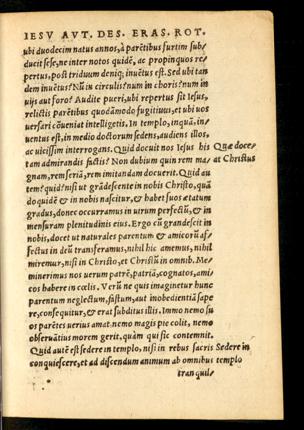 IESV AVT. DES. ERAS. ROT.
ubi duodecim natus annos, à parẽtibus furtim sub/
ducit sese, ne inter notos quidẽ, ac propinquos re/
pertus, post triduum deniq; inuẽtus est. Sed ubi tan
dem inuẽtus? Nũ in circulis? num in choris? num in
uijs aut foro? Audite pueri, ubi repertus sit Iesus,
relictis parẽtibus quodãmodo fugitiuus, et ubi uos
uersari cõueniat intelligetis. In templo, inquã, in/
uentus est, in medio doctorum sedens, audiens illos,
ac uicissim interrogans. Quid docuit nos Iesus his
Quæ doce/
tam admirandis factis? Non dubium quin rem ma
at Christus
gnam, rem seriã, rem imitandam docuerit. Quid au
tem? quid? nisi ut grãdescente in nobis Christo, quã
do quidẽ & in nobis nascitur, & habet suos ætatum
gradus, donec occurramus in uirum perfectũ, & in
mensuram plenitudinis eius. Ergo cũ grandescit in
nobis, docet ut naturales parentum & amicorũ af/
fectus in deũ transferamus, nihil hic amemus, nihil
miremur, nisi in Christo, et Christũ in omnib. Me/
minerimus nos uerum patrẽ, patriã, cognatos, ami/
cos habere in cœlis. Verũ ne quis imaginetur hunc
parentum neglectum, fastum, aut inobedientiã sape
re, consequitur, & erat subditus illis. Immo nemo su
os parẽtes uerius amat, nemo magis pie colit, nemo
obseruãtius morem gerit, quàm qui sic contemnit.
Quid autẽ est sedere in templo, nisi in rebus sacris
Sedere in
conquiescere, et ad discendum animum ab omnibus
templo
tranquil/